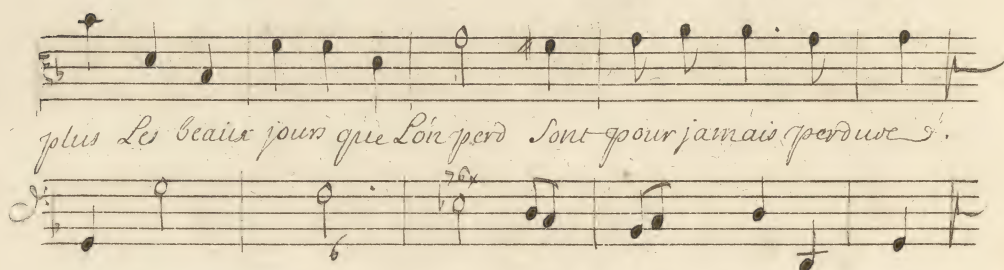 plus Les beaux jours que L'on perd Sont pour jamais perdües.
76x
6